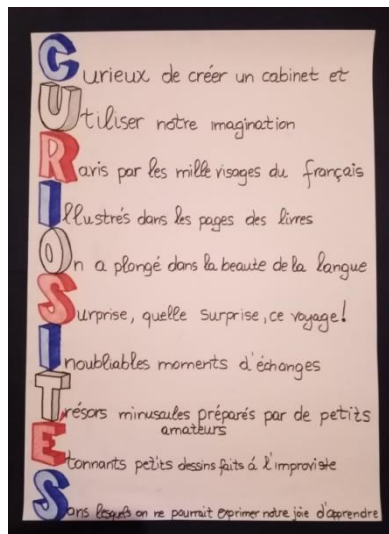 Curieux de créer un cabinet et
Utiliser notre imagination
Ravis par les mille visages du français
Illustrés dans les pages des livres
On a plongé dans la beaute de la langue
Surprise, quelle surprise, ce voyage!
Inoubliables moments d'échanges
Trésors minuscules préparés par de petits
amateurs
Etonnants petits dessins faits á l'improviste
Sans lesquels on ne pourrait exprimer notre joie d'apprendre